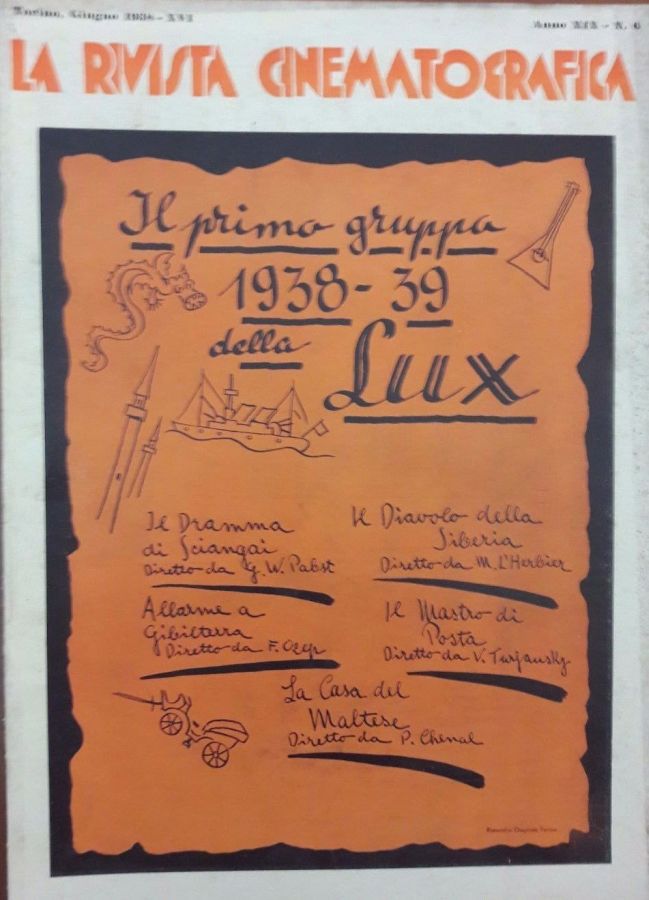 Torino, Giugno 1938 - XVI
Anno XIX - N. 6
LA RIVISTA CINEMATOGRAFICA
Il primo gruppo
1938 - 39
della Lux
Il Dramma
di Sciangai
Diretto da G. W. Pabst
Il Diavolo della
Siberia
Diretto da M. L'Herbier
Allarme a
Gibilterra
Diretto da F. Ozep
Il Mastro di
Posta
Diretto da V. Turjansky
La Casa del
Maltese
Diretto da P. Chenal